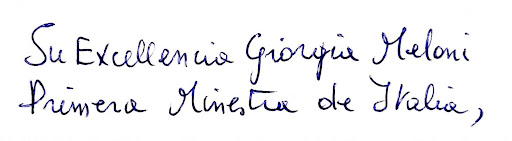 Su Excellencia Giorgia Meloni
Primera Ministra de Italia,